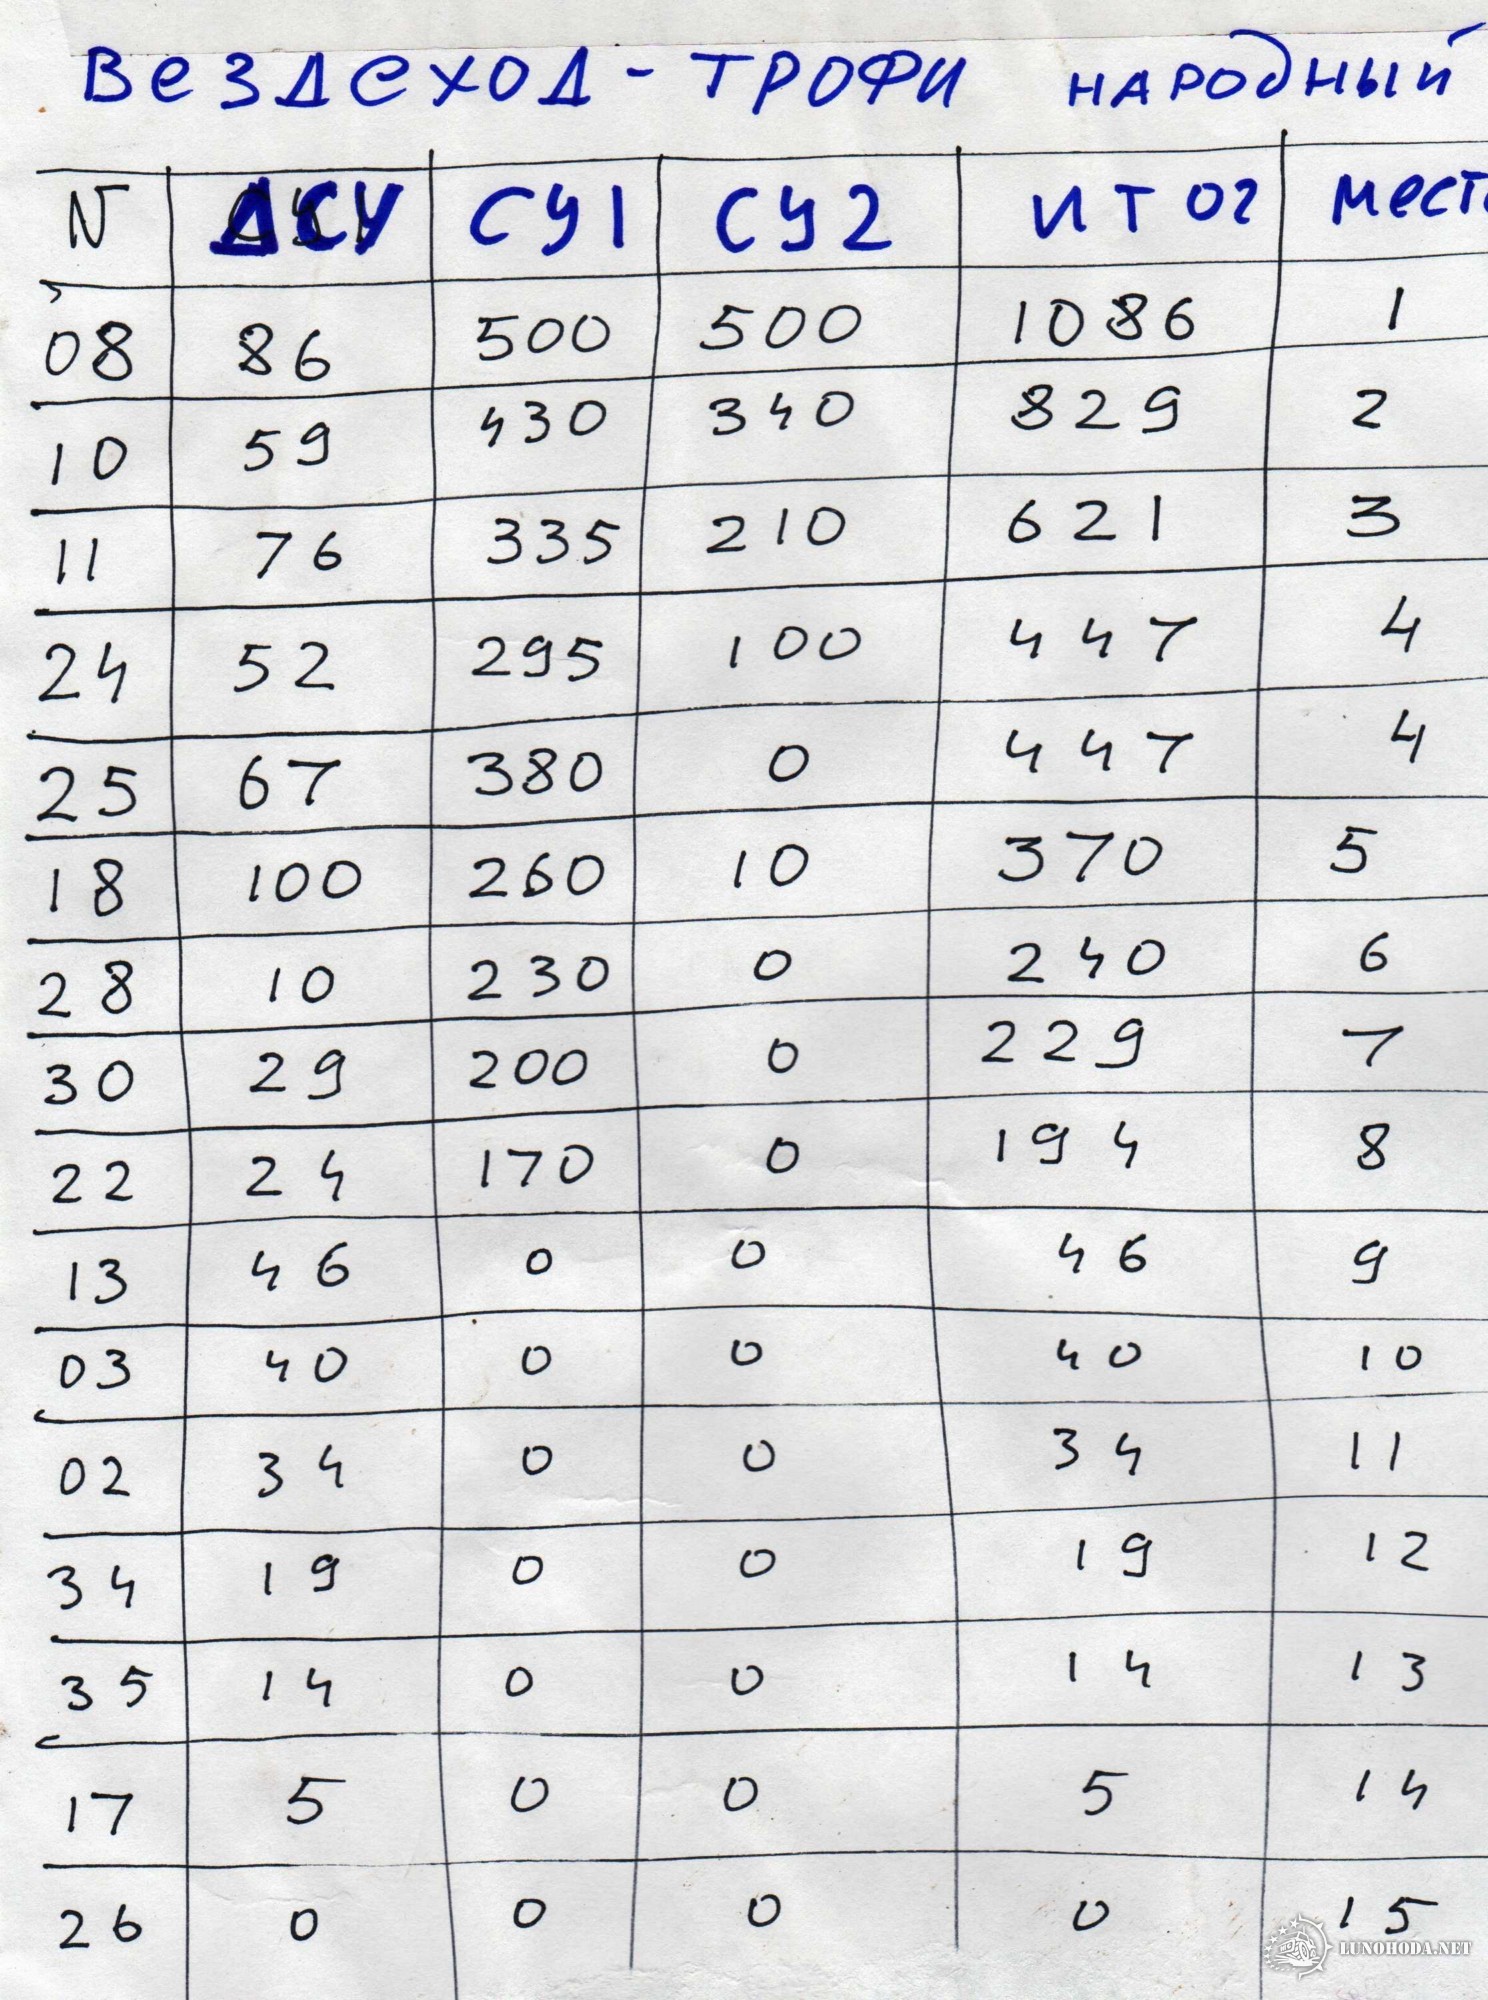 Вездеход - трофи народный
N ДСУ СУ1 СУ2 итог мест
08 86 500 500 1086 1
10 59 430 340 829 2
11 76 335 210 621 3
24 52 295 100 447 4
25 67 380 0 447 4
18 100 260 10 370 5
28 10 230 0 240 6
30 29 200 0 229 7
22 24 170 0 194 8
13 46 0 0 46 9
03 40 0 0 40 10
02 34 0 0 34 11
34 19 0 0 19 12
35 14 0 0 14 13
17 5 0 0 5 14
26 0 0 0 0 15
LUNOHODA.NET